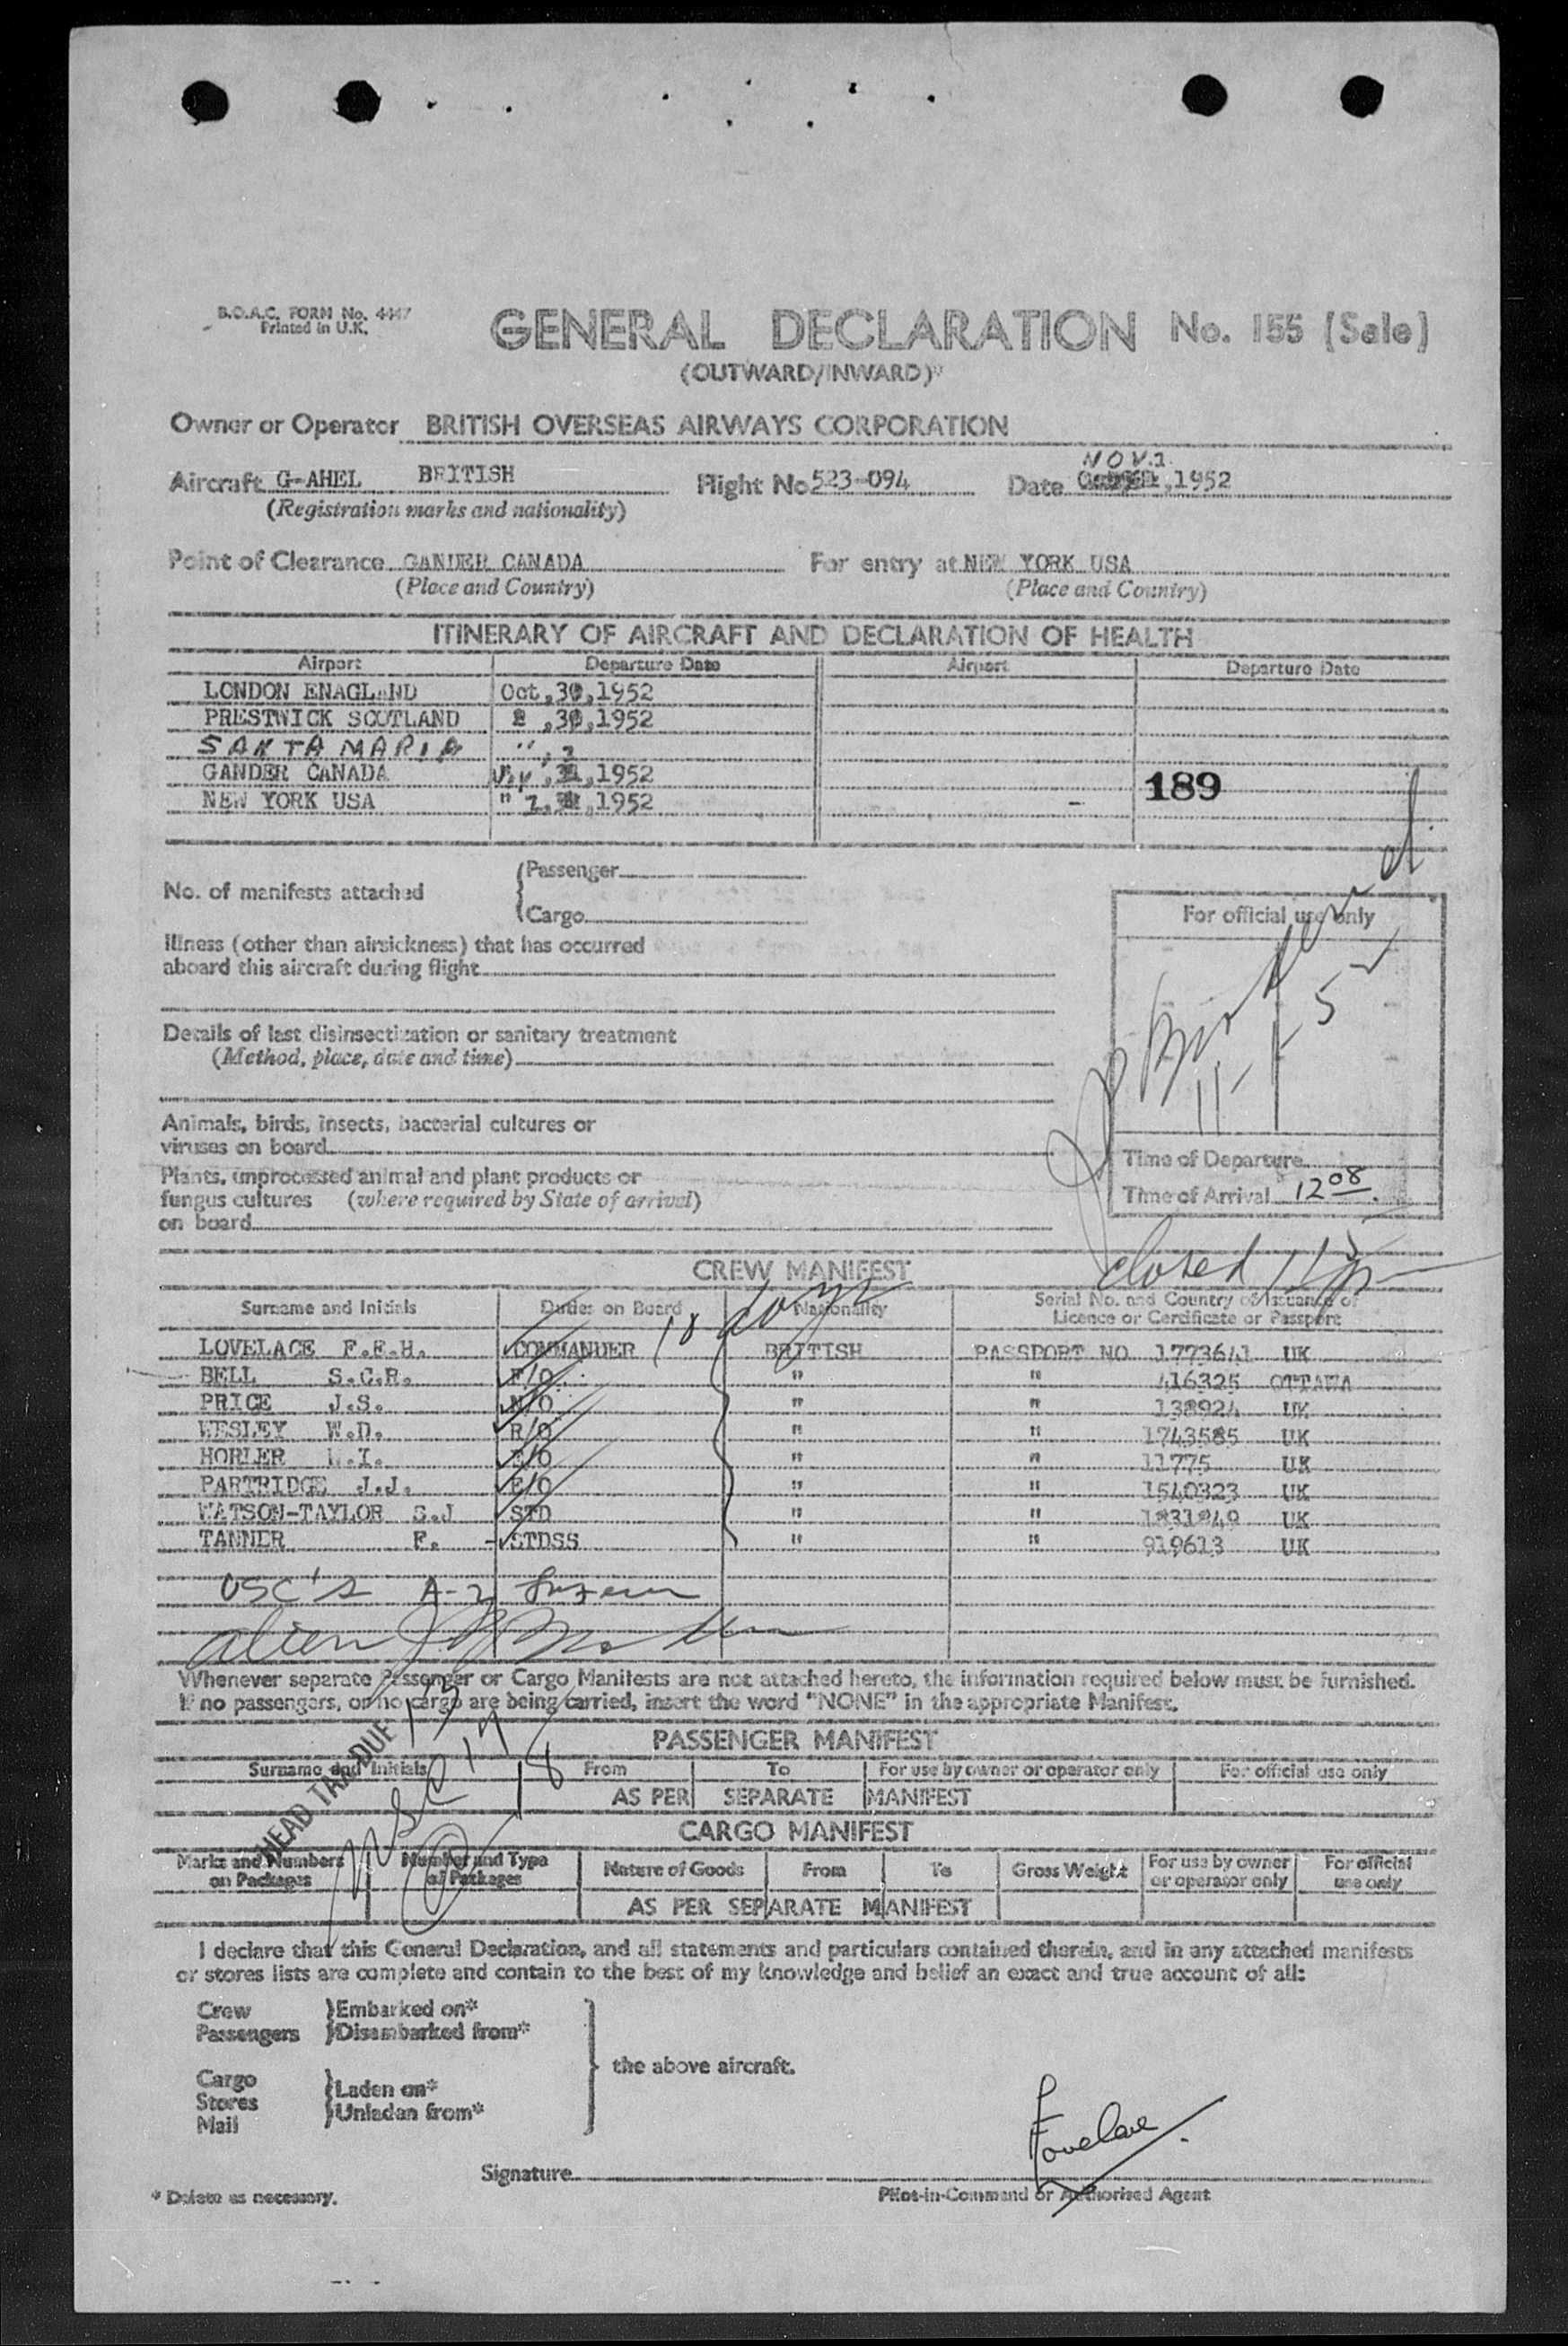 B.O.A.C. FORM No. 4447
Printed in U.K.
GENERAL DECLARATION No. 155 (Sale)
(OUTWARD/INWARD)*
Owner or Operator BRITISH OVERSEAS AIRWAYS CORPORATION
NOV.1
Aircraft G-AHEL BRITISH Flight No 523-094 Date ,1952
(Registration marks and nationality)
Point of Clearance GANDER CANADA For entry at NEW YORK USA
(Place and Country) (Place and Country)
ITINERARY OF AIRCRAFT AND DECLARATION OF HEALTH
Airport Departure Date Airport Departure Date
LONDON ENAGLAND Oct,30,1952
PRESTWICK SCOTLAND " ,30,1952
SANTA MARIA "
GANDER CANADA ,1952
189
NEW YORK USA " ,1952
No. of manifests attached
Passenger
Cargo
For official use only
Illness (other than airsickness) that has occurred
aboard this aircraft during flight
Details of last disinsectization or sanitary treatment
(Method, place, date and time)
11-1-52
Animals, birds, insects, bacterial cultures or
viruses on board
Plants, unprocessed animal and plant products or
fungus cultures (where required by State of arrival)
on board
Time of Departure
Time of Arrival 12 08
closed
CREW MANIFEST
18 days
Surname and Initials Duties on Board Nationality Serial No. and Country of Issuance of
Licence or Certificate or Passport
LOVELACE F.E.H. COMMANDER BRITISH PASSPORT NO 1773641 UK
BELL S.C.R. F/O " " 416325 OTTAWA
PRICE J.S. N/O " " 138924 UK
WESLEY W.D. R/O " " 1743585 UK
HORLER W.I. E/O " " 11775 UK
PARTRIDGE J.J. E/O " " 1540323 UK
WATSON-TAYLOR S.J STD " " 1831849 UK
TANNER F. STDSS " " 919613 UK
USC's A-2
alien
Whenever separate Passenger or Cargo Manifests are not attached hereto, the information required below must be furnished.
If no passengers, or no cargo are being carried, insert the word "NONE" in the appropriate Manifest.
HEAD TAX DUE
USC
PASSENGER MANIFEST
Surname and Initials From To For use by owner or operator only For official use only
AS PER SEPARATE MANIFEST
CARGO MANIFEST
Marks and Numbers on Packages Number and Type of Packages Nature of Goods From To Gross Weight For use by owner or operator only For official use only
AS PER SEPARATE MANIFEST
I declare that this General Declaration, and all statements and particulars contained therein, and in any attached manifests
or stores lists are complete and contain to the best of my knowledge and belief an exact and true account of all:
Crew Embarked on*
Passengers Disembarked from*
the above aircraft.
Cargo
Stores
Mail
Laden on*
Unladen from*
Lovelace
Signature
* Delete as necessary.
Pilot-in-Command or Authorised Agent